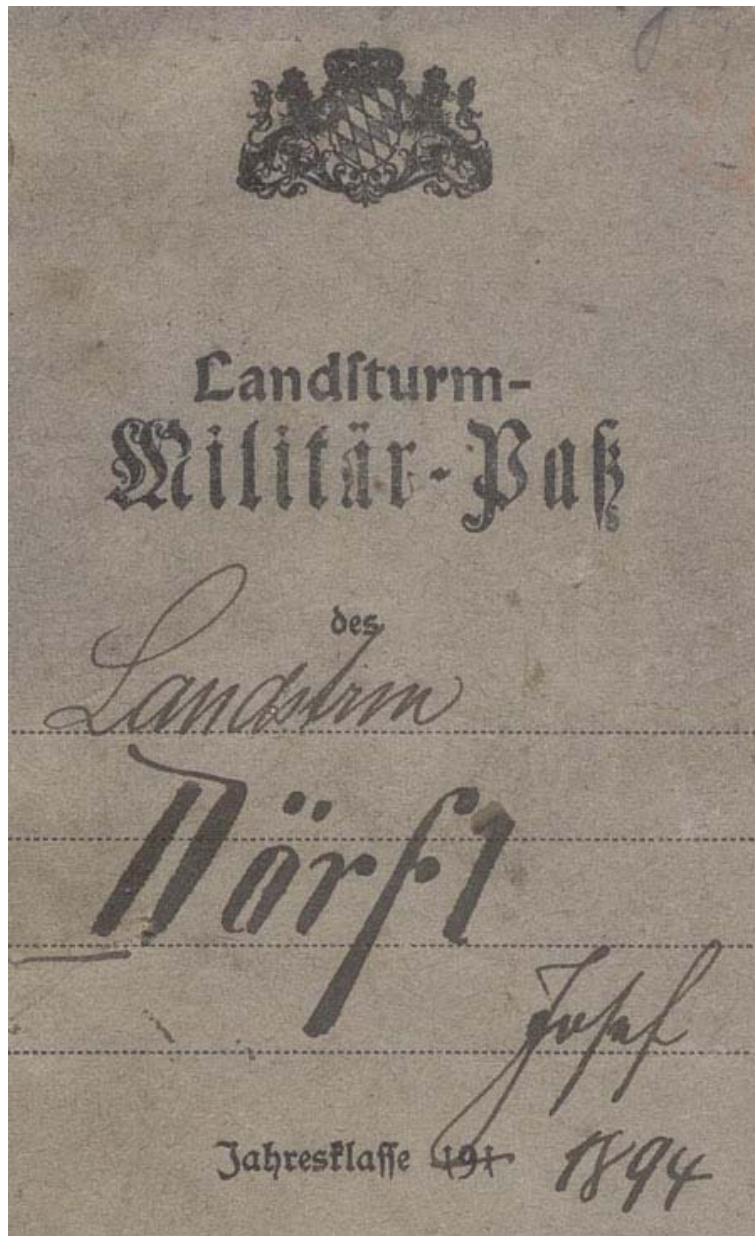 Landſturm-
Militär-Paß
des
Landstrm
Dörfl
Josef
Jahresklaſſe 191 1894